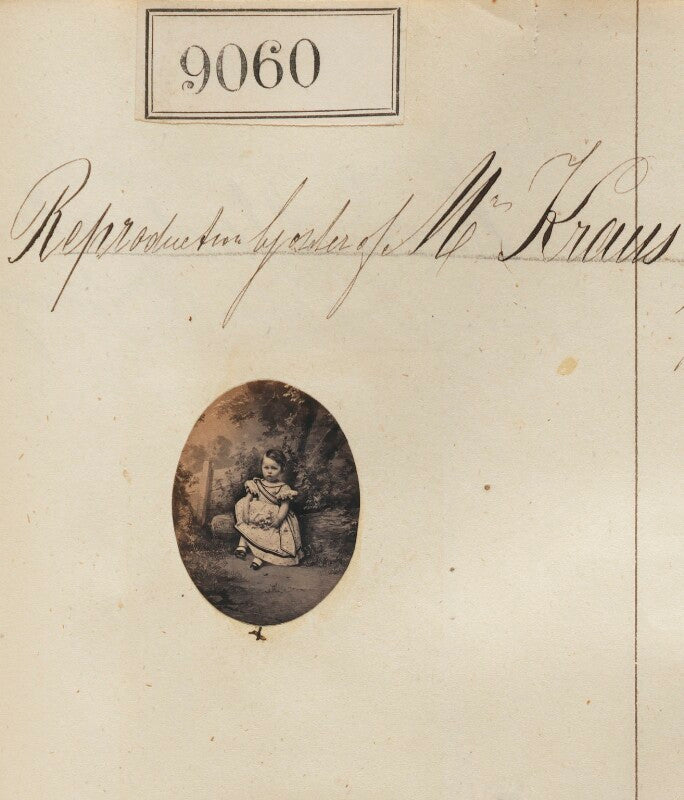 9060
Reproduction by order of Mrs Kraus